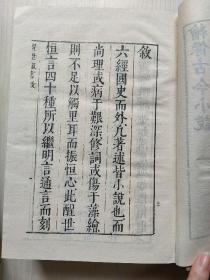 敘
六經國史而外凡著述皆小說也而
尚理或病于艱深修詞或傷于藻繪
則不足以觸里耳而振恒心此醒世
恒言四十種所以繼明言通言而刻